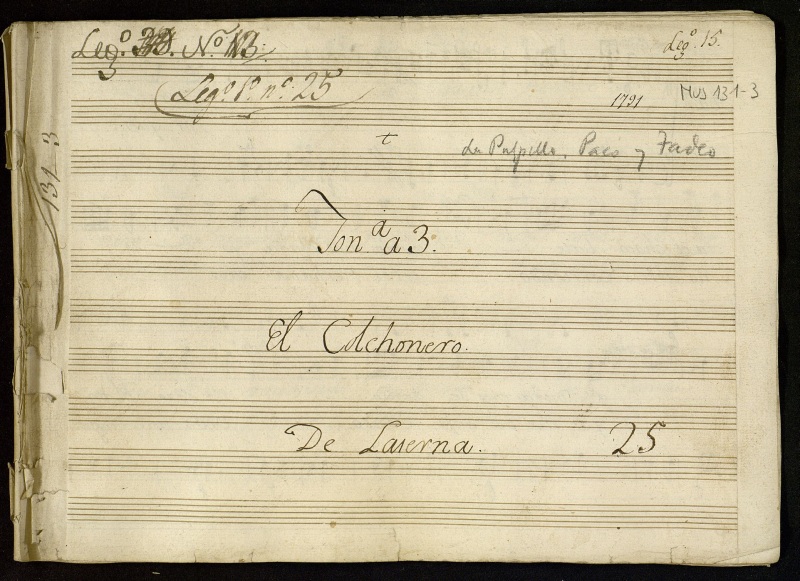 Leg.º Nº 13.
Leg.º 15.
Leg.º 1º n.º 25
1791
MUS 131-3
t
La Pulpillo, Paco y Tadeo
131 3
Ton.ª a 3.
El Colchonero.
De Laserna.
25